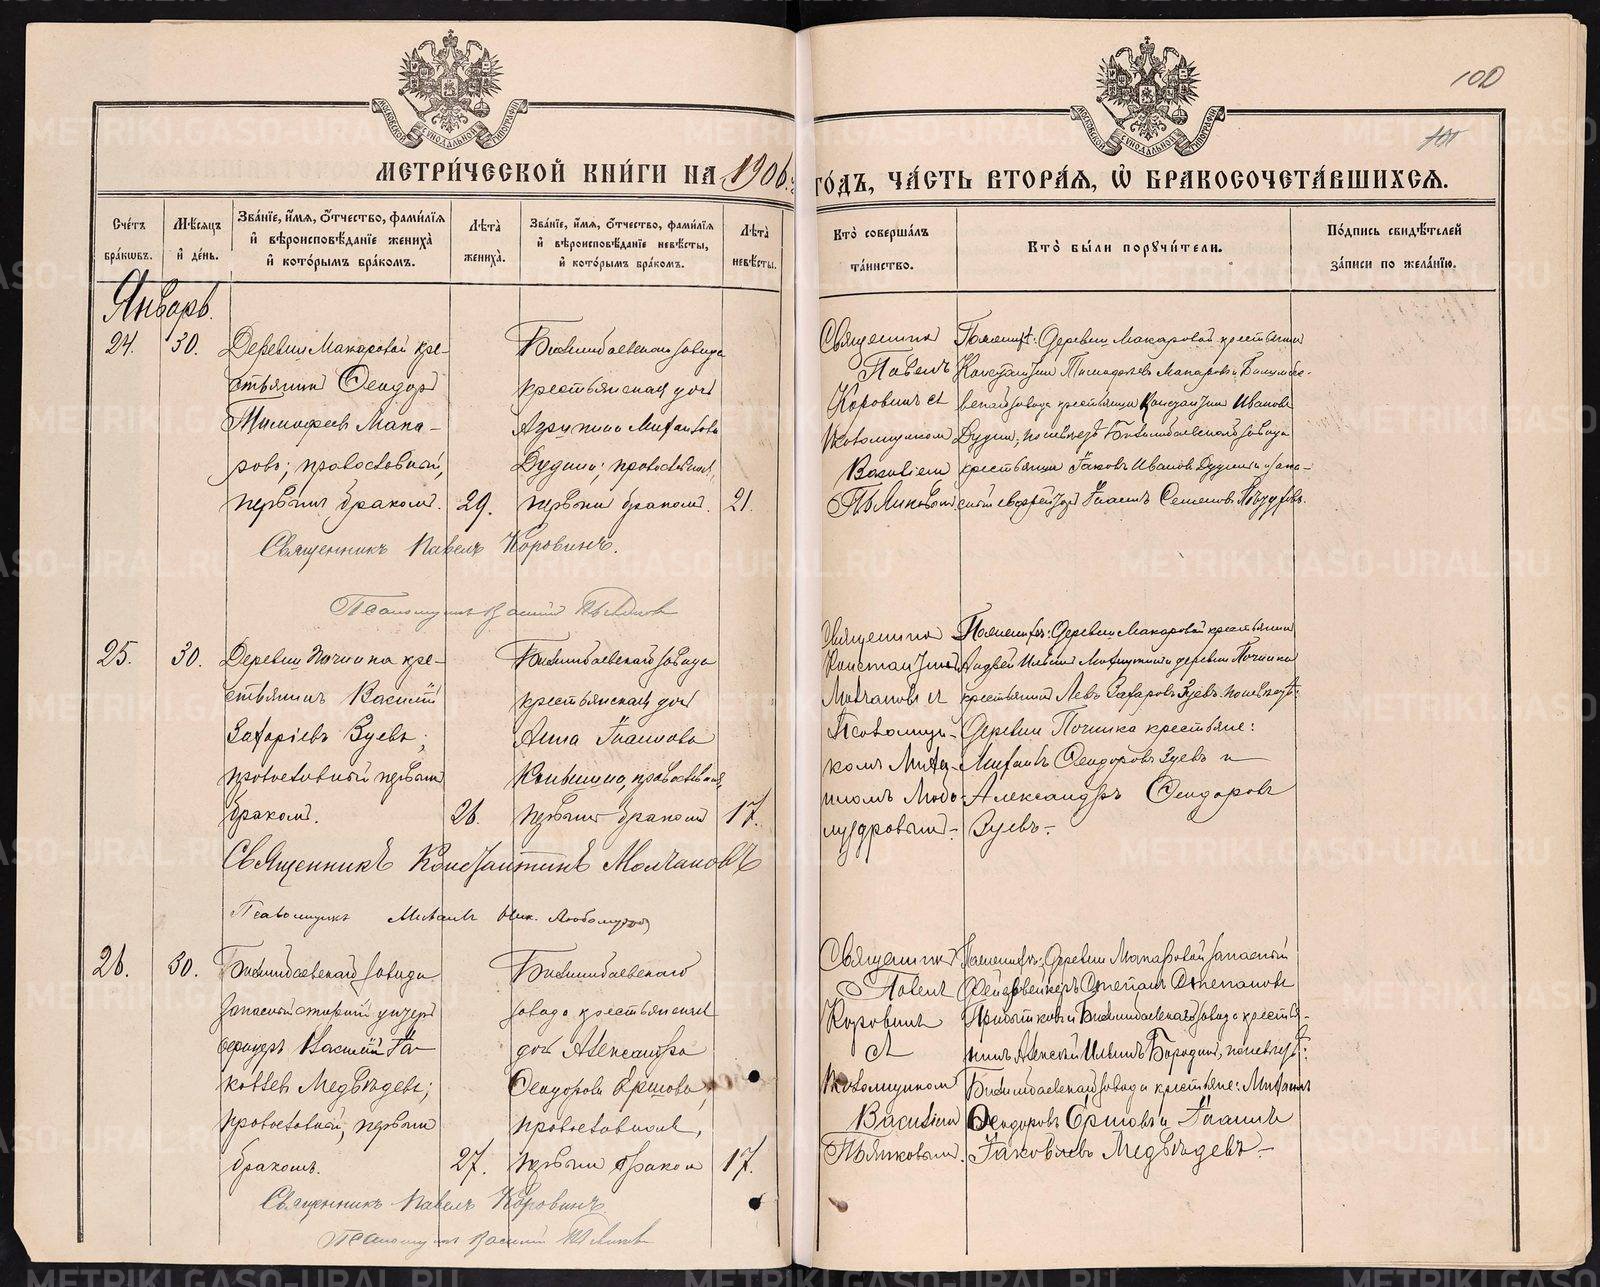 100
МОСКОВСКОЙ СѴНОДАЛЬНОЙ ТИПОГРАФІИ
МОСКОВСКОЙ СѴНОДАЛЬНОЙ ТИПОГРАФІИ
МЕТРИ́ЧЕСКОЙ КНИ́ГИ НА 1906 ГО́ДЪ, ЧА́СТЬ ВТОРА́Я, Ѡ БРАКОСОЧЕТА́ВШИХСЯ.
Сче́тъ бра́кѡвъ.
Мѣ́сяцъ и҆ де́нь.
Зва́нїе, и҆́мѧ, о҆́тчество, фами́лїѧ и҆ вѣроисповѣ́данїе жениха̀ и҆ кото́рымъ бра́комъ.
Лѣ́та жениха̀.
Зва́нїе, и҆́мѧ, о҆́тчество, фами́лїѧ и҆ вѣроисповѣ́данїе невѣ́сты, и҆ кото́рымъ бра́комъ.
Лѣ́та невѣ́сты.
Кто̀ соверша́лъ та́инство.
Кто̀ бы́ли порꙋчи́тели.
По́дпись свидѣ́телей за́писи по жела́нїю.
Январь.
24.
30.
Деревни Макаровой кре-
стьянинъ Ѳеодоръ
Тимофеевъ Мака-
ровъ; православный,
первымъ бракомъ.
29.
Билимбаевскаго завода
крестьянская дочь
Михаилова
Дудина; православная,
первымъ бракомъ.
21.
Священникъ
Павелъ
Коровинъ и
Псаломщикомъ
Василіем
Пьянковымъ
По женихѣ: Деревни Макаровой крестьянинъ
Константинъ Тимофеевъ Макаровъ и Билимба-
евскаго завода крестьянинъ Константинъ Ивановъ
Дудинъ; по невѣстѣ Билимбаевскаго завода
крестьянинъ Іаковъ Ивановъ Дудинъ и запа-
сный Іоаннъ Семеновъ
Священникъ Павелъ Коровинъ.
Псаломщикъ Василій Пьянков
25.
30.
Деревни Починка кре-
стьянинъ Василій
Захаріевъ Зуевъ;
православный первымъ
бракомъ.
26.
Билимбаевскаго завода
крестьянская дочь
Анна Іоаннова
православная,
первымъ бракомъ
17.
Священникъ
Константинъ
Молчановъ и
Псаломщи-
комъ Миха-
иломъ Любо-
мудровымъ-
По женихѣ: Деревни Макаровой крестьянинъ
Ильинъ и деревни Починка
крестьянинъ Левъ Захаровъ Зуевъ. по невѣстѣ:
Деревни Починка крестьяне:
Михаилъ Ѳеодоровъ Зуевъ и
Александръ Ѳеодоровъ
Зуевъ.-
Священникъ Константинъ Молчановъ
Псаломщикъ Михаилъ Ник. Любомудров
26.
30.
Билимбаевскаго завода
Запасный старшій унтеръ
офицеръ Василій Іа-
ковлев Медвѣдевъ;
православный, первымъ
бракомъ.
27.
Билимбаевскаго
завода крестьянская
дочь Александра
Ѳеодорова Ершова,
православная,
первымъ бракомъ
17.
Священникъ
Павелъ
Коровинъ
и
Псаломщикомъ
Василіем
Пьянковымъ.
По женихѣ: Деревни Макаровой запасный
Фейерверкеръ Степанъ Степановъ
Прибытковъ и Билимбаевскаго завода крестья-
нинъ Алексѣй Ильинъ Бородинъ, по невѣстѣ:
Билимбаевскаго завода крестьяне: Михаилъ
Ѳеодоровъ Ершовъ и Іоаннъ
Іаковлевъ Медвѣдевъ.-
Священникъ Павелъ Коровинъ.
Псаломщикъ Василій Пьянков
METRIKI.GASO-URAL.RU